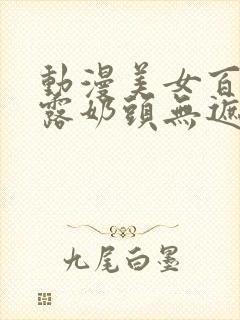 動漫美女百
露奶頭無遮
九尾白墨